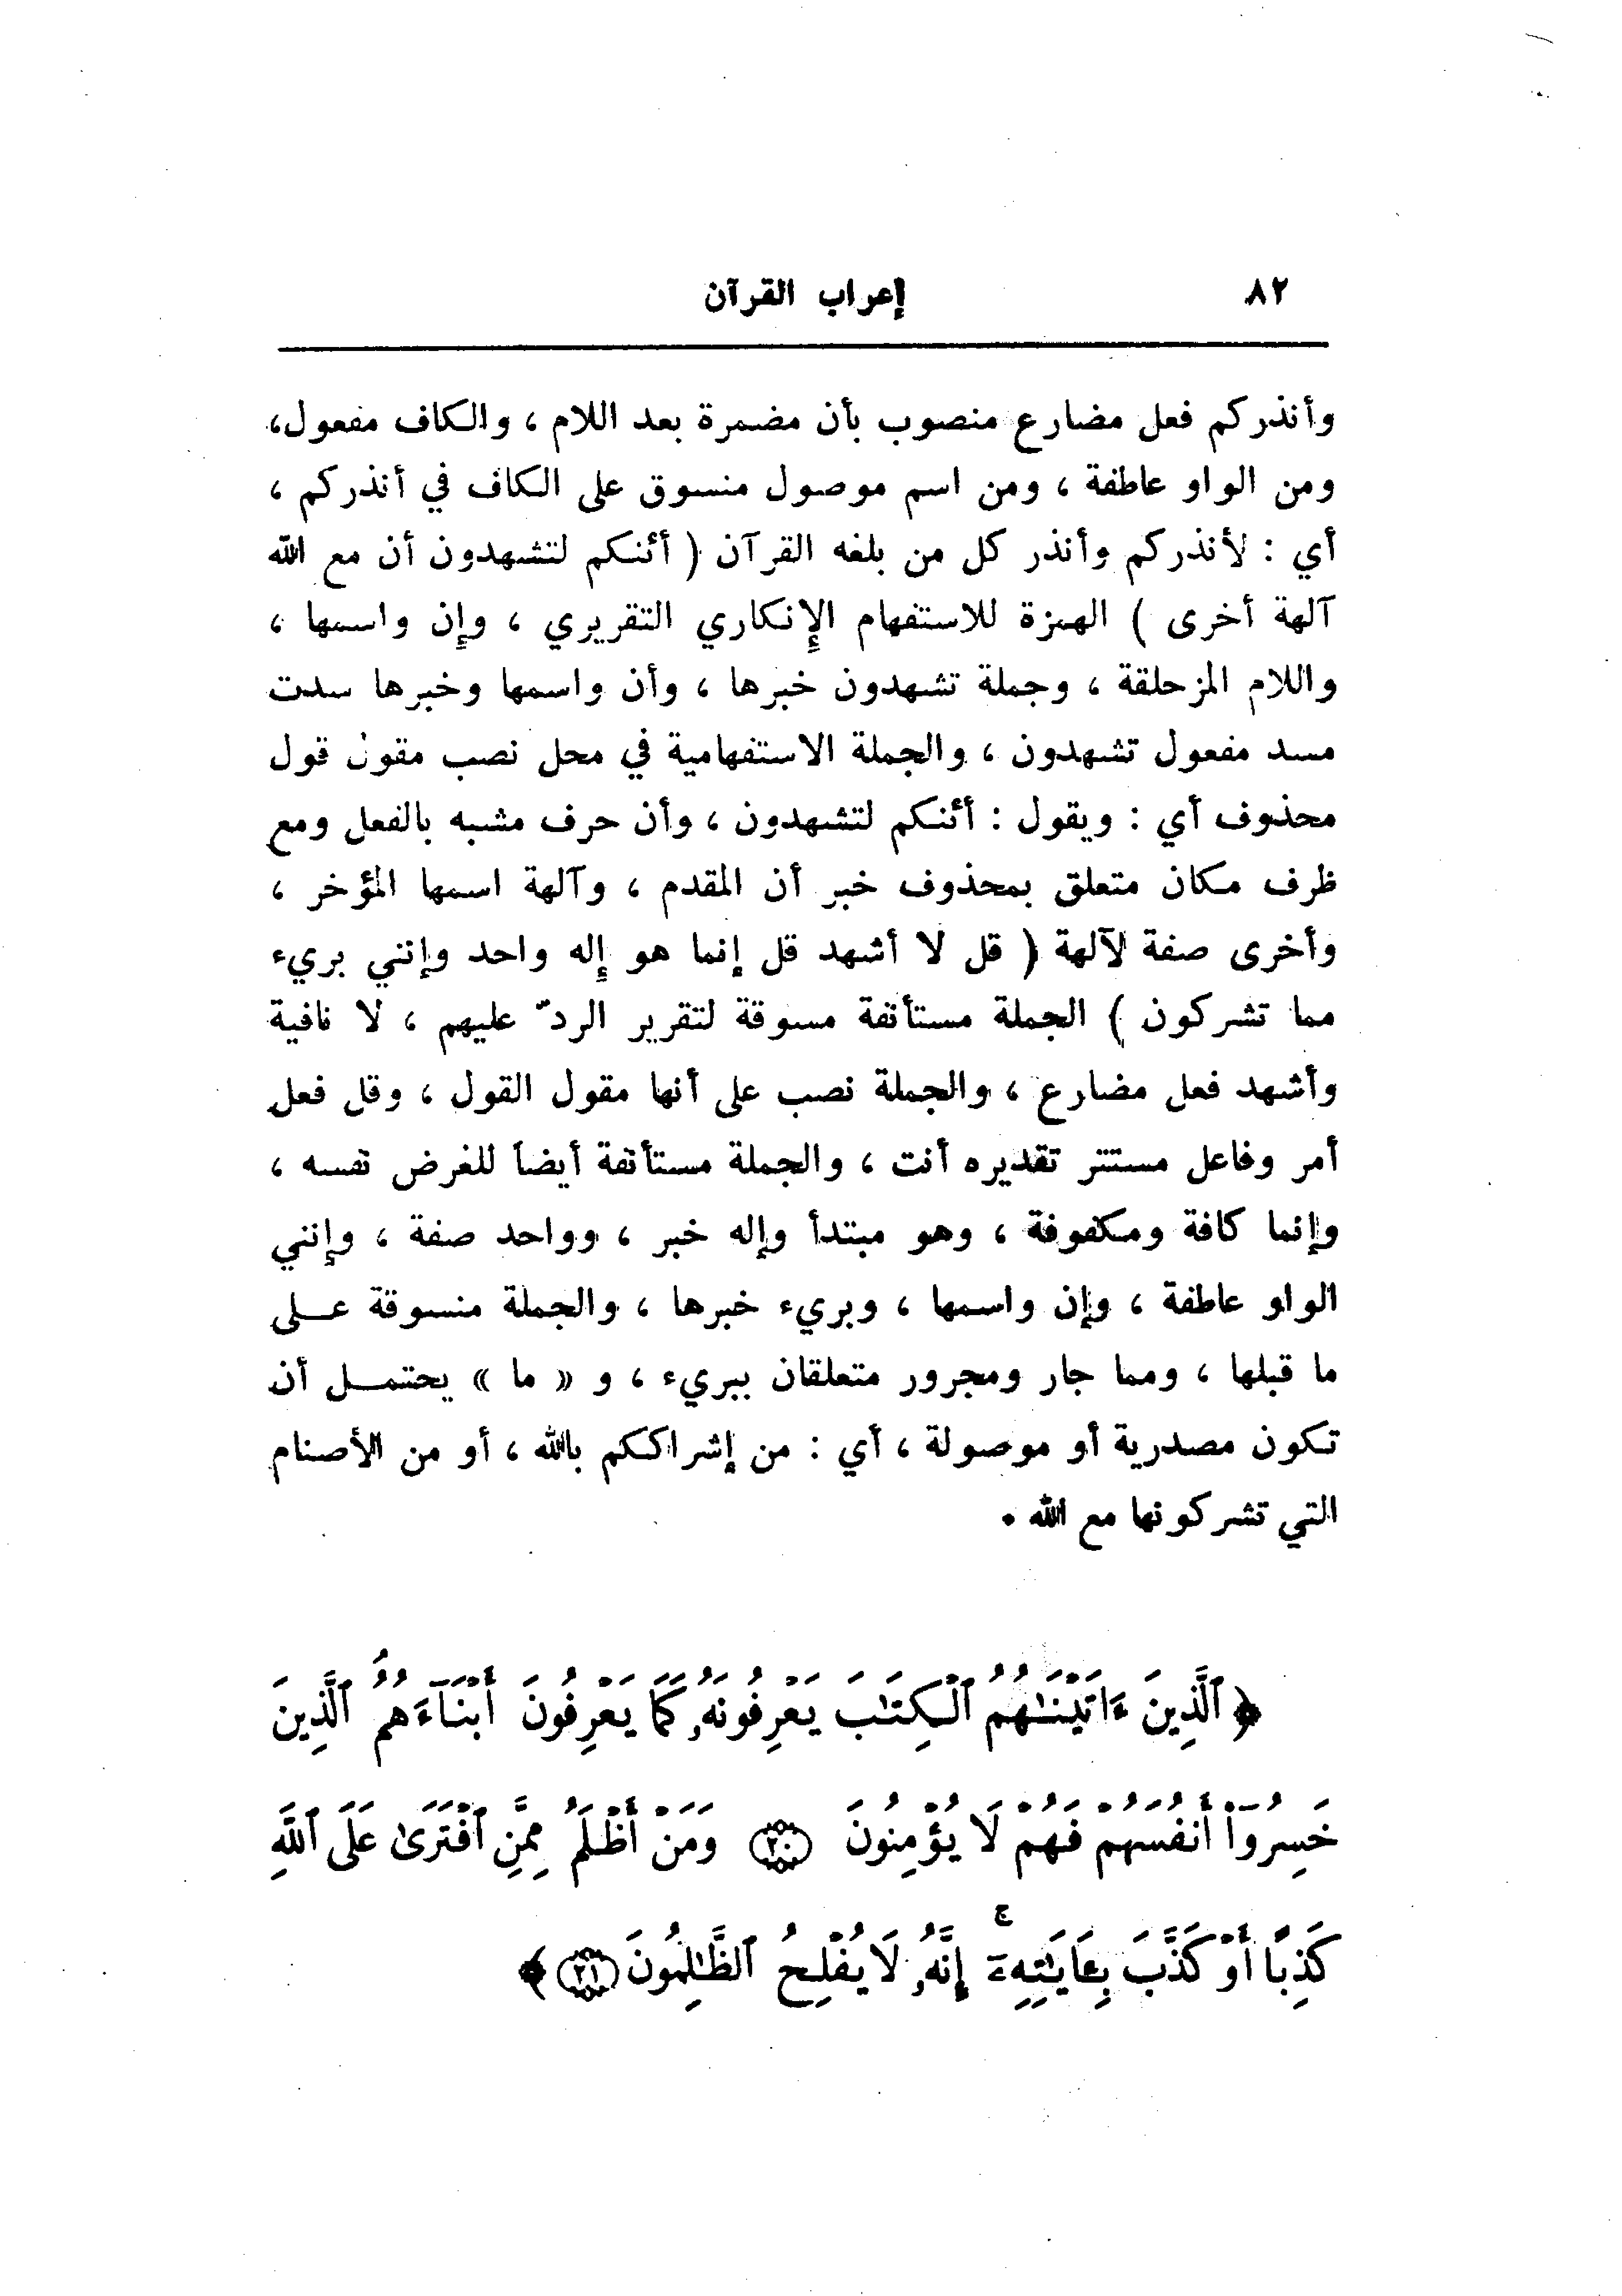 ٨٢
إعراب القرآن
وأنذركم فعل مضارع منصوب بأن مضمرة بعد اللام ، والكاف مفعول،
ومن الواو عاطفة ، ومن اسم موصول منسوق على الكاف في أنذركم ،
أي : لأنذركم وأنذر كل من بلغه القرآن ( أئنكم لتشهدون أن مع الله
آلهة أخرى ) الهمزة للاستفهام الإنكاري التقريري ، وإن واسمها ،
واللام المزحلقة ، وجملة تشهدون خبرها ، وأن واسمها وخبرها سدت
مسد مفعول تشهدون ، والجملة الاستفهامية في محل نصب مقول قول
محذوف أي : ويقول : أئنكم لتشهدون ، وأن حرف مشبه بالفعل ومع
ظرف مكان متعلق بمحذوف خبر أن المقدم ، وآلهة اسمها المؤخر ،
وأخرى صفة لآلهة ( قل لا أشهد قل إنما هو إله واحد وإنني بريء
مما تشركون ) الجملة مستأنفة مسوقة لتقرير الردّ عليهم ، لا نافية
وأشهد فعل مضارع ، والجملة نصب على أنها مقول القول ، وقل فعل
أمر وفاعل مستتر تقديره أنت ، والجملة مستأنفة أيضاً للغرض نفسه ،
وإنما كافة ومكفوفة ، وهو مبتدأ وإله خبر ، وواحد صفة ، وإنني
الواو عاطفة ، وإن واسمها ، وبريء خبرها ، والجملة منسوقة عــلى
ما قبلها ، ومما جار ومجرور متعلقان ببريء ، و « ما » يحتمــل أن
تكون مصدرية أو موصولة ، أي : من إشراككم بالله ، أو من الأصنام
التي تشركونها مع الله .
﴿ ٱلَّذِينَ ءَاتَيْنَـٰهُمُ ٱلْكِتَـٰبَ يَعْرِفُونَهُۥ كَمَا يَعْرِفُونَ أَبْنَآءَهُمُ ٱلَّذِينَ
خَسِرُوٓا۟ أَنفُسَهُمْ فَهُمْ لَا يُؤْمِنُونَ ﴿٢٠﴾ وَمَنْ أَظْلَمُ مِمَّنِ ٱفْتَرَىٰ عَلَى ٱللَّهِ
كَذِبًا أَوْ كَذَّبَ بِـَٔايَـٰتِهِۦٓ ۚ إِنَّهُۥ لَا يُفْلِحُ ٱلظَّـٰلِمُونَ ﴿٢١﴾ ﴾